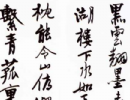 黑雲翻墨
湖樓下水如
枕能令山俯
繫青菰裹